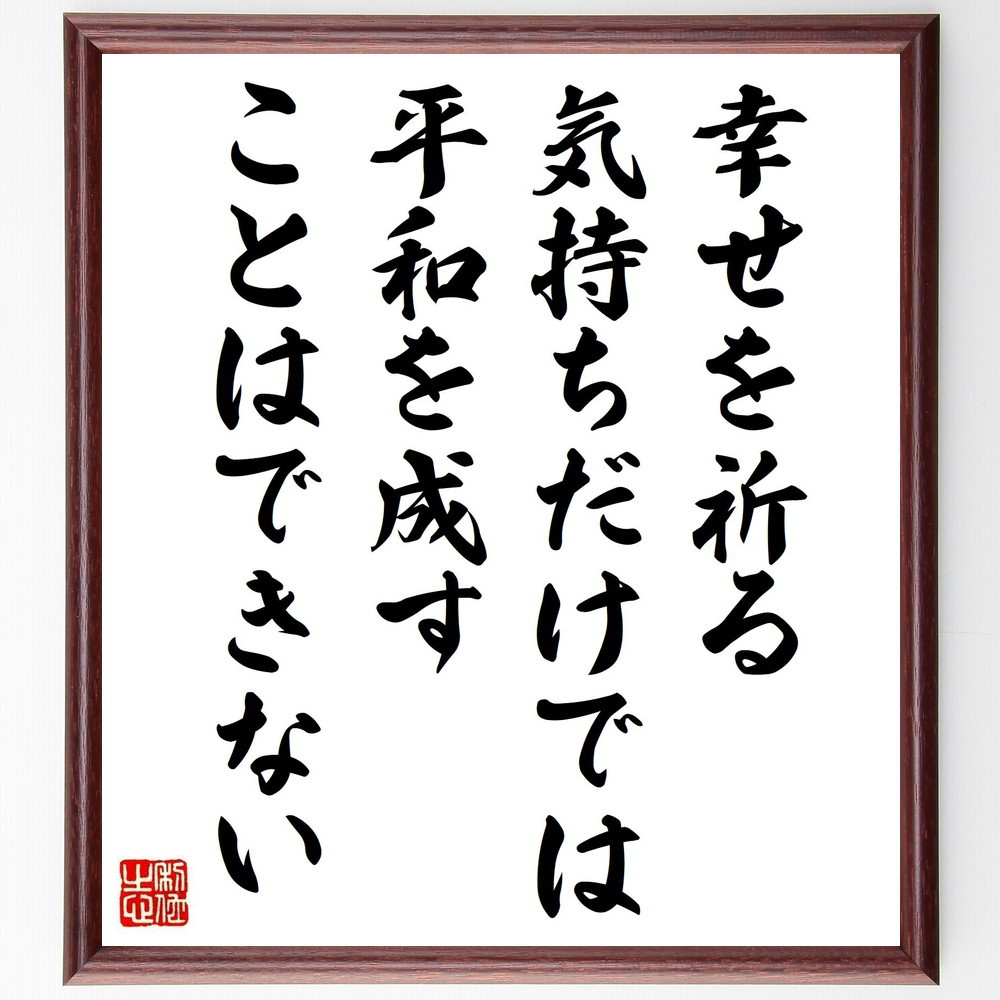 幸せを祈る
気持ちだけでは
平和を成す
ことはできない